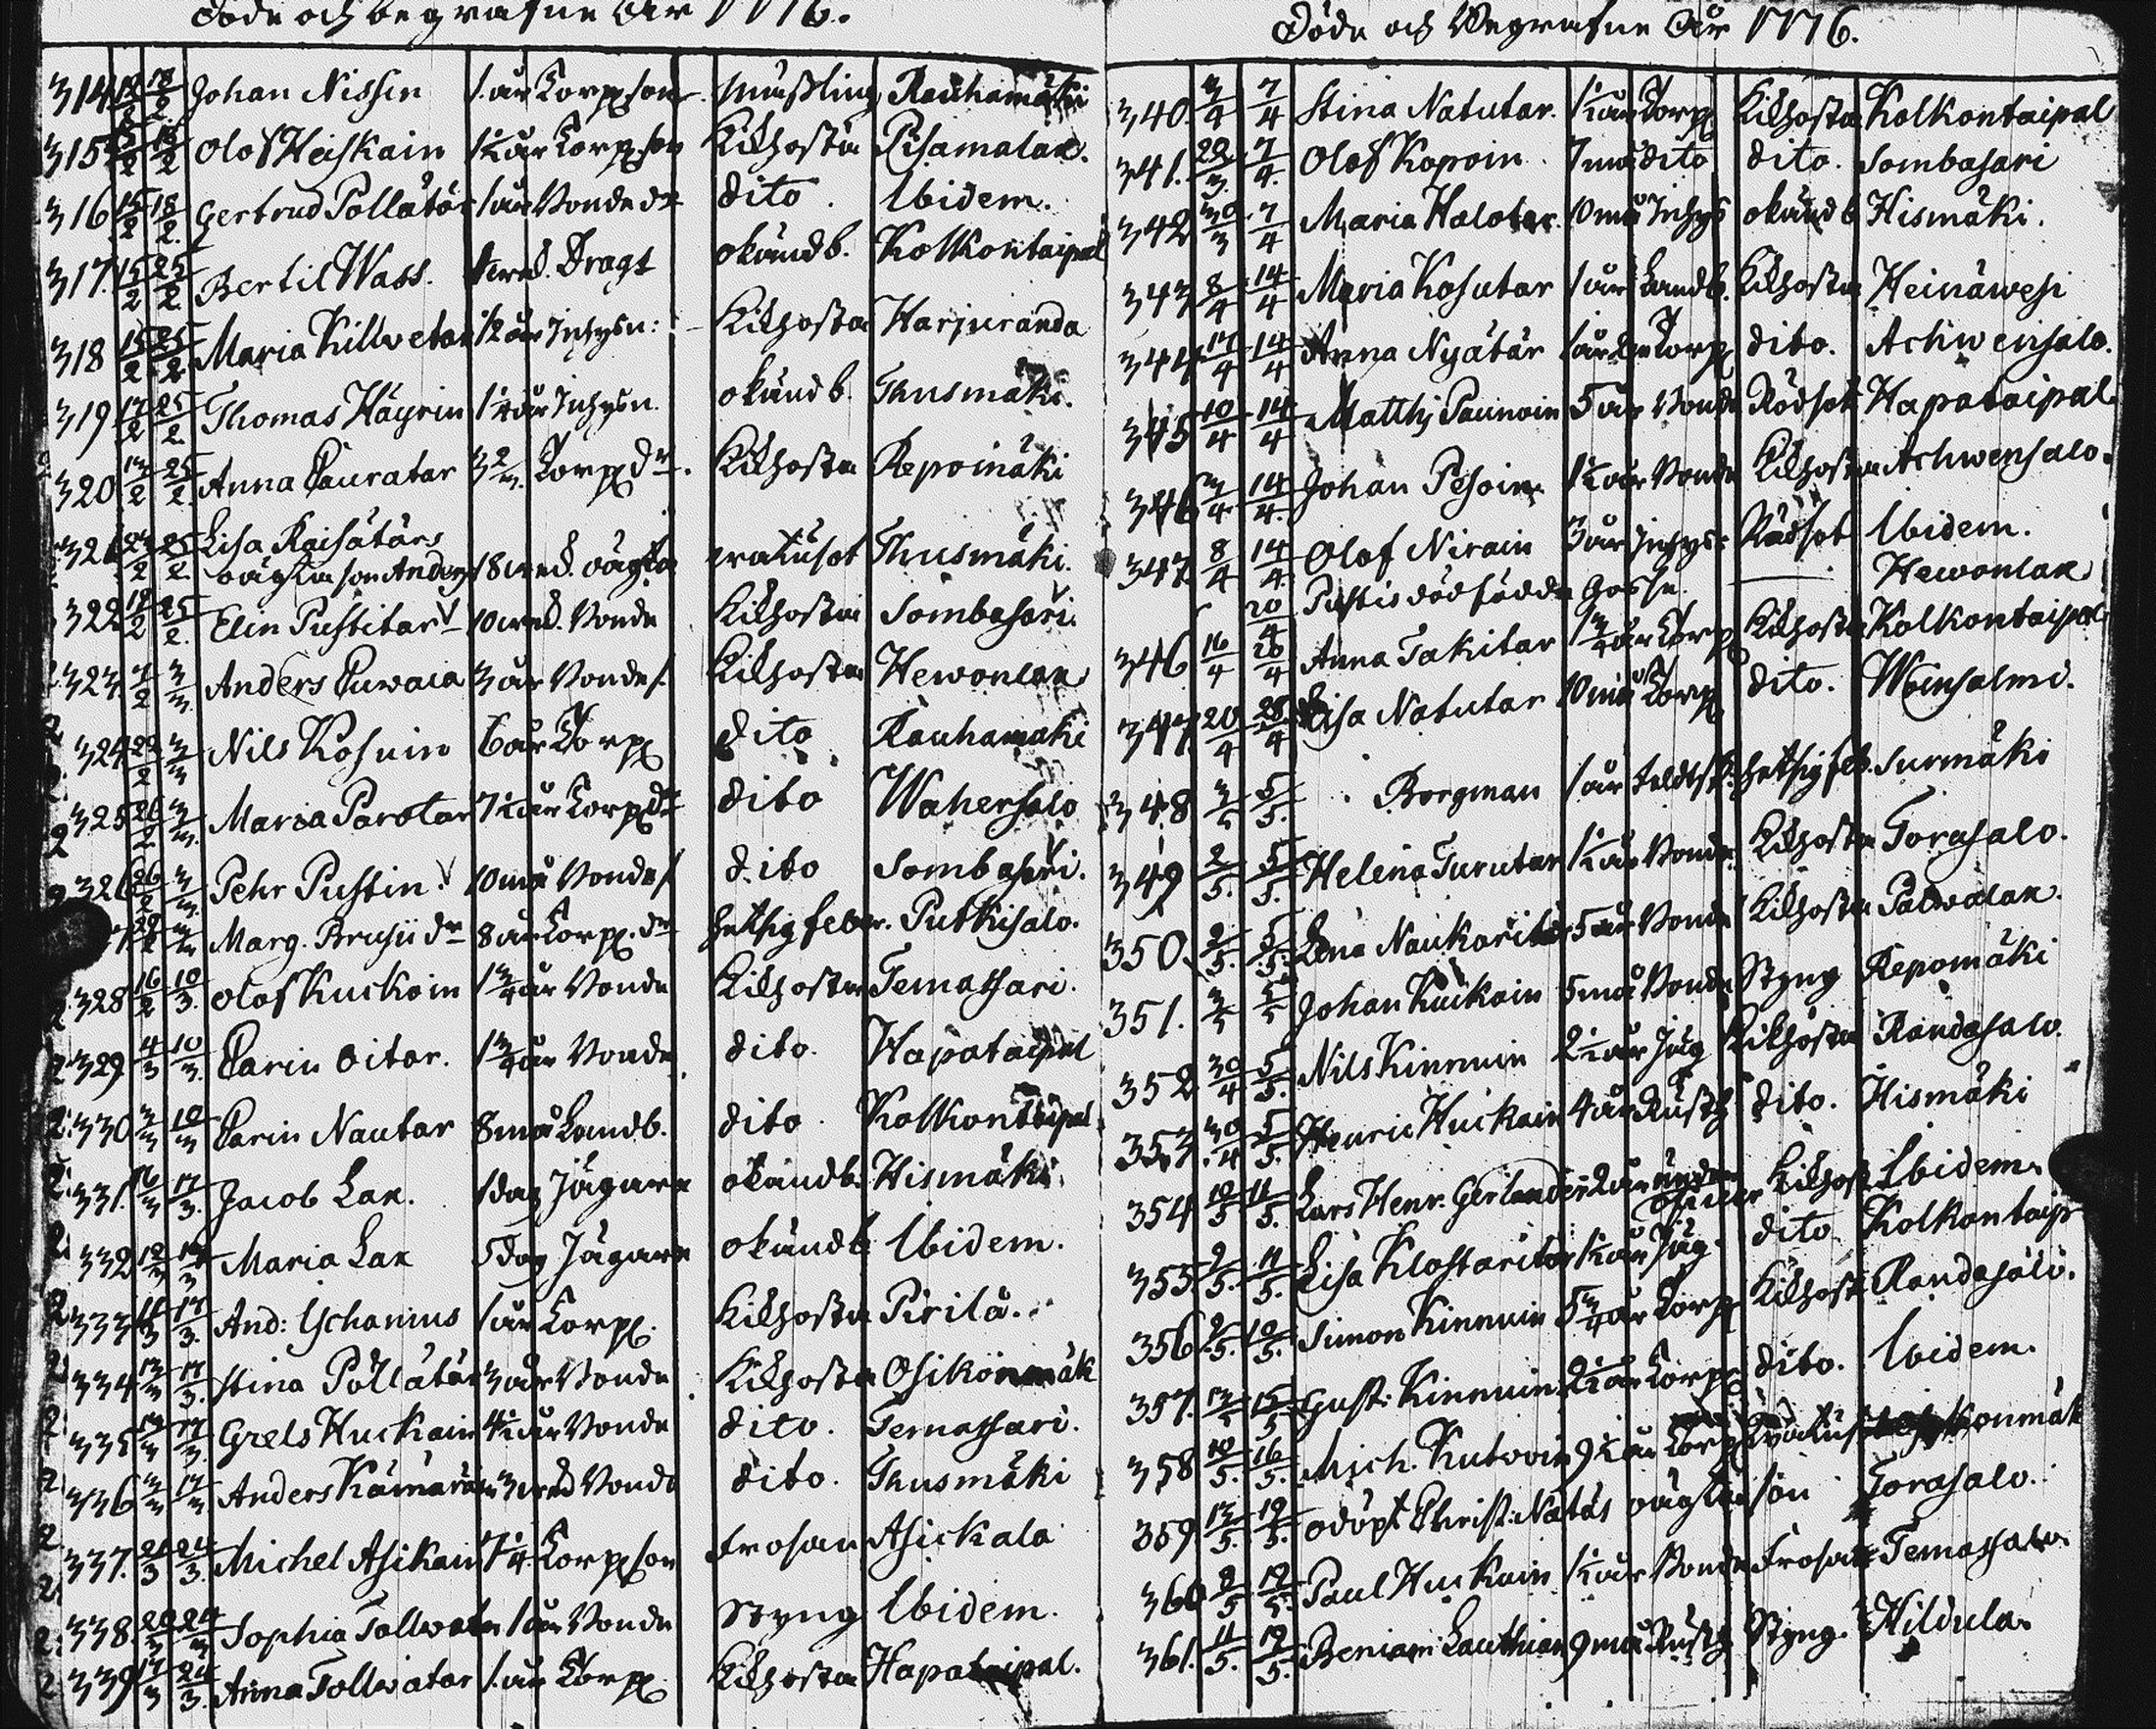 Döde och begrafne År 1776.
314 18/2 18/2 Johan Nissin 1 år Torp. son Mässling Rauhamäki
315 15/2 18/2 Olof Heiskain 1½ år Torp. son Kikhosta Pisamalax.
316 15/2 18/2 Gertrud Pollatar 1 år Bonde dr dito Ibidem.
317. 15/2 25/2 Bertil Wass. Dragt okänd b. Kolkontaipal
318 15/2 25/2 Maria Killwetar ½ år Inhysn: Kikhosta Harjuranda
319 17/2 25/2 Thomas Häyrin 1¼ år Inhysn okänd b. Thusmäki.
320 13/2 25/2 Anna Lauratar 3 2/m. Torp dr. Kikhosta Repomäki
321 23/2 25/2 Lisa Raisätärs
oägta son Anders 18 wed. oägta Thusmäki.
322 18/2 25/2 Elin Pustitar 10 wed. Bonde Kikhosta Sombasari.
323. 3/3 Anders Puwaia 3 år Bonde s. Kikhosta Hewonlax
324 29/2 3/3 Nils Kosuin 6 år Torp dito Rauhamäki
325 26/2 3/3 Maria Parotar 7½ år Torp dr dito Wahersalo
326 26/2 3/3 Pehr Pustin. 10 må Bonde s dito Sombasari.
Marg. Brusii dr 8 år Torp. dr hetsig feber. Putkisalo.
328 16/2 10/3. Olof Kuckoin 1¾ år Bonde Kikhosta Temassari.
329 4/3 10/3. Carin Oitar. 1¾ år Bonde dito. Hapataipal
330 3/3 10/3 Carin Nautar 8 må Landb. dito. Kolkontaipal
331. 16/3 17/3. Jacob Lax. 1 dag Jägare okänd b. Hismäki.
332 12/3 17/3 Maria Lax 5 dag Jägare okänd b Ibidem.
333 11/3 17/3. And: Ischanius 1 år Torp. Kikhosta Pirilä.
334 13/3 17/3. Stina Pollätär 3 år Bonde Kikhosta Osikonmäk
335 13/3 17/3. Grels Huckain 4½ år Bonde dito. Temassari.
336 3/3 17/3 Anders Kämäräin 3 wed Bonde dito. Thusmäki
337. 21/3 24/3. Michel Asikain 7¼. Torp son Frosan Asickala
338. 20/3 24/3 Sophia Tollwatar 1 år Bonde Styng Ibidem.
339 17/3 24/3. Anna Tollwatar 1. år Torp. Kikhosta Hapataipal.
Döde och Begrafne År 1776.
340. 3/4 7/4 Stina Natutar. 1½ år Torp Kikhosta Kolkontaipal
341. 29/3. 7/4. Olof Kopoin 7 må dito dito. Sombasari
342 30/3 7/4 Maria Halotar. 10 må Inhys okänd b Hismäki.
343 8/4 14/4 Maria Kosutar 1 år Landb. Kikhosta Heinäwesi
344 14/4 14/4 Anna Nyätär 1 år Torp dito. Achwensalo.
345 10/4 14/4 Matthj Paunoin 5 år Bonde Rödsot Hapataipal
346 3/4 14/4. Johan Pesoin 1½ år Bonde Kikhosta Achwensalo.
347 8/4 14/4. Olof Nirain 3 år Inhyse Rödsot Ibidem.
20/4 Pustis dödfödde Gosse. Hewonlax
346 16/4 28/4 Anna Takitar 1¾ år Torp Kikhosta Kolkontaipal
347. 20/4 28/4 Lisa Natutar 10 må Torp dito. Woinsalmi.
348 3/5 5/5. Borgman 1 år Feldtsk. hetsig feb. Surmäki
349 2/5. 5/5. Helena Turutar 1½ år Bonde Kikhosta Torasalo.
350. 2/5. 5/5. Lena Naukaritar 5 år Bonde Kikhosta Palwalax.
351. 3/5 5/5 Johan Kuckoin 5 må Bonde Styng Repomäki
352 30/4 5/5. Nils Kinnuin 2½ år Jäg Kikhosta Randasalo.
353. 30/4 5/5. Henric Huckain 4 år Rusth dito. Hismäki
354 10/5 11/5. Lars Henr. Gerlander 2 år under
officer Kikhost Ibidem.
355. 9/5. 11/5. Lisa Klostaritar 1½ år Jäg. dito Kolkontaip
356 9/5. 12/5. Simon Kinnuin 5¾ år Torp Kikhost Randasalo.
357. 12/5 15/5 Gust: Kinnuin 2½ år Torp dito. Ibidem.
358 10/5. 16/5. Mich. Kutwoin 9½ år Torp
359. 13/5. 19/5. odöpt Christ: Natås oägta son Torasalo.
360 9/5 19/5. Paul Huckain 1½ år Bonde Frosan Temassalo.
361. 11/5. 19/5. Beniam: Lauthian 9 må Rusth Styng. Hildula.